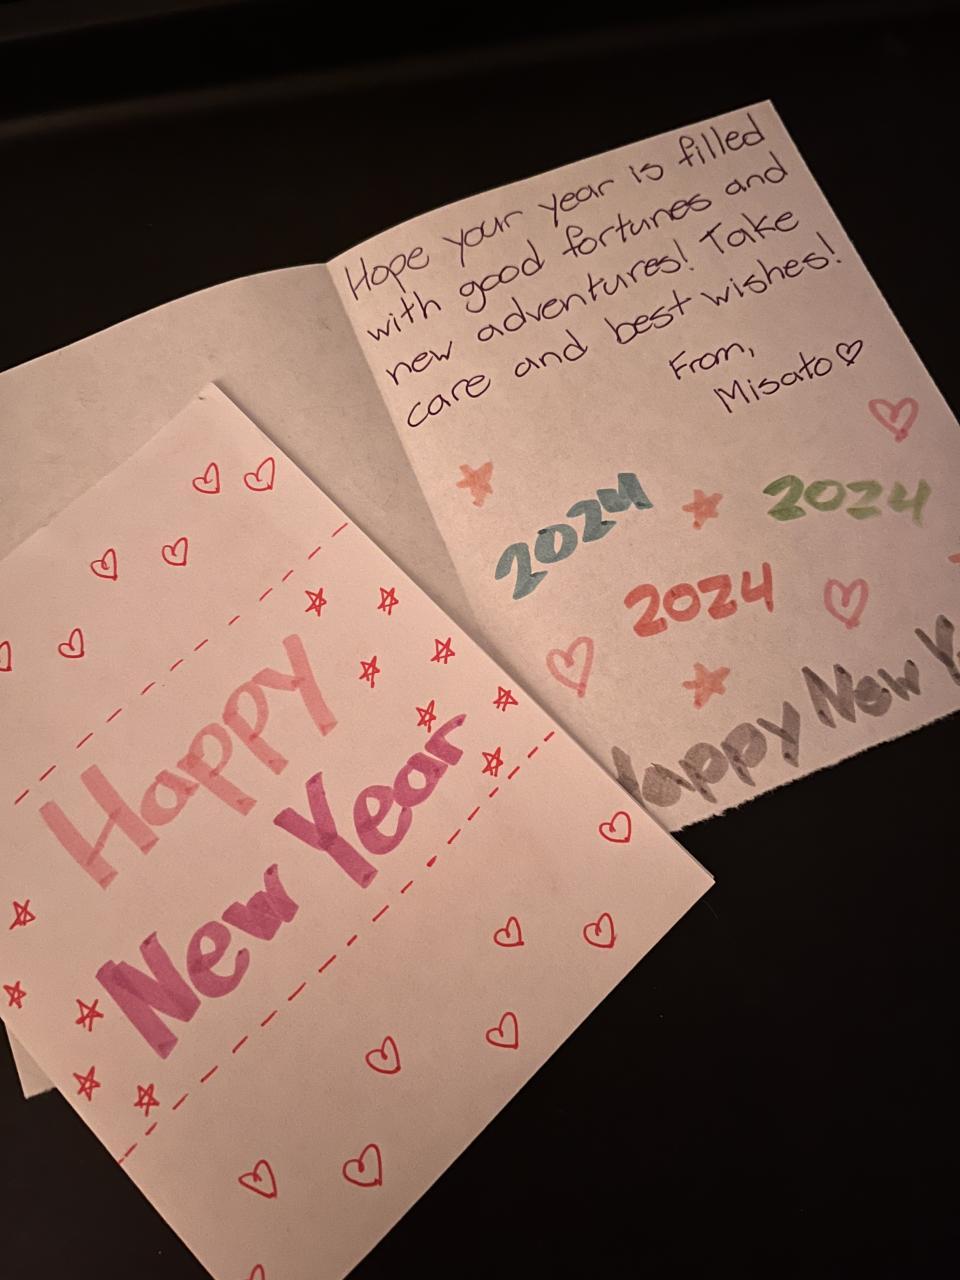 Hope your year is filled
with good fortunes and
new adventures! Take
care and best wishes!
From,
Misato
2024
2024
2024
Happy New Y
Happy
New Year